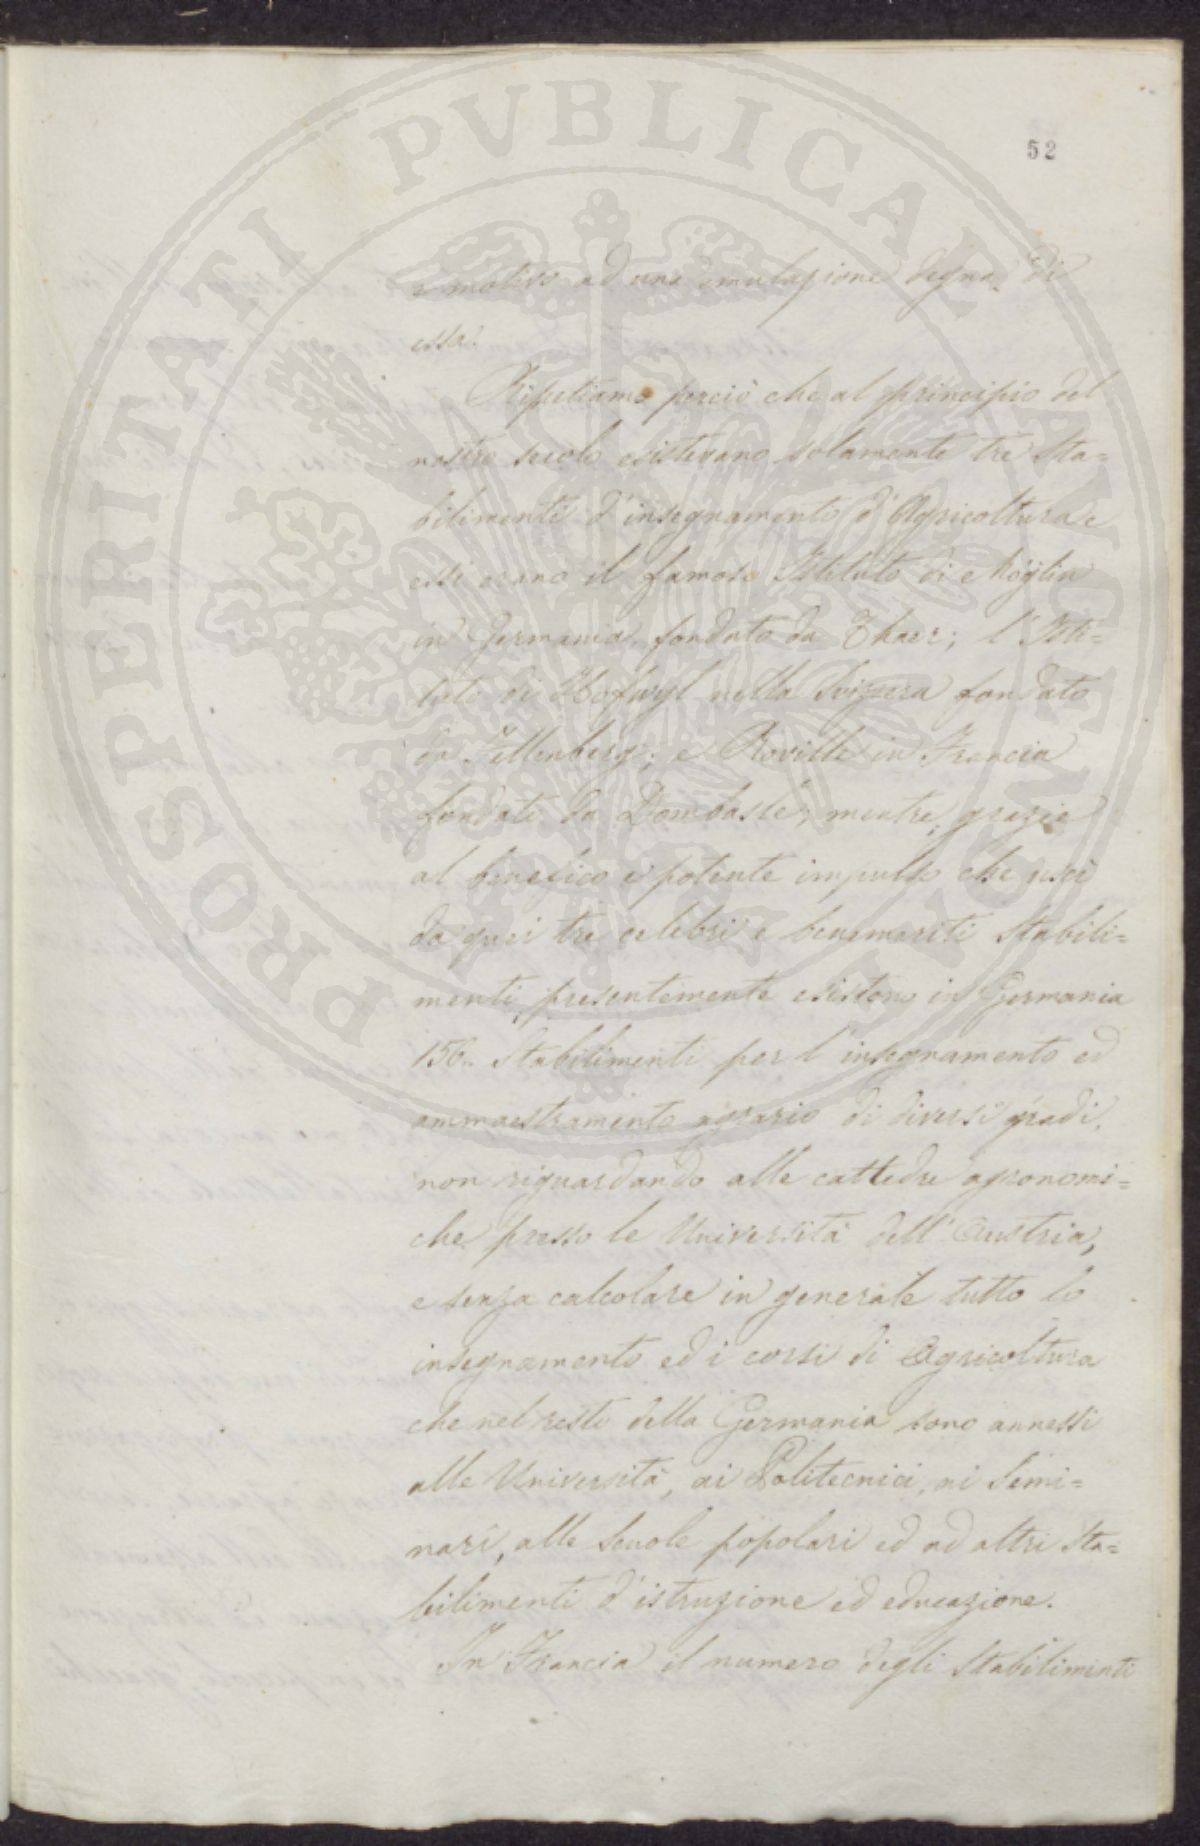 52
e motivo ad una emulazione degna di
essa.
Ripetiamo perciò che al principio del
nostro secolo esistevano solamente tre sta=
bilimenti d'insegnamento d'Agricoltura e
essi erano il famoso Istituto di Möglin
in Germania fondato da Thaer; l'Isti=
tuto di Hofwyl nella Svizzera fondato
da Fellenberg; e Roville in Francia
fondato da Dombasle; mentre, grazie
al benefico e potente impulso che uscì
da quei tre celebri e benemeriti Stabili=
menti, presentemente esistono in Germania
156 Stabilimenti per l'insegnamento ed
ammaestramento agrario di diversi gradi,
non riguardando alle cattedre agronomi=
che presso le Università dell'Austria,
e senza calcolare in generale tutto lo
insegnamento ed i corsi di Agricoltura
che nel resto della Germania sono annessi
alle Università, ai Politecnici, ai Semi=
nari, alle Scuole popolari ed ad altri Sta=
bilimenti d'istruzione ed educazione.
In Francia il numero degli Stabilimenti
PROSPERITATI PVBLICAE AVGENDAE